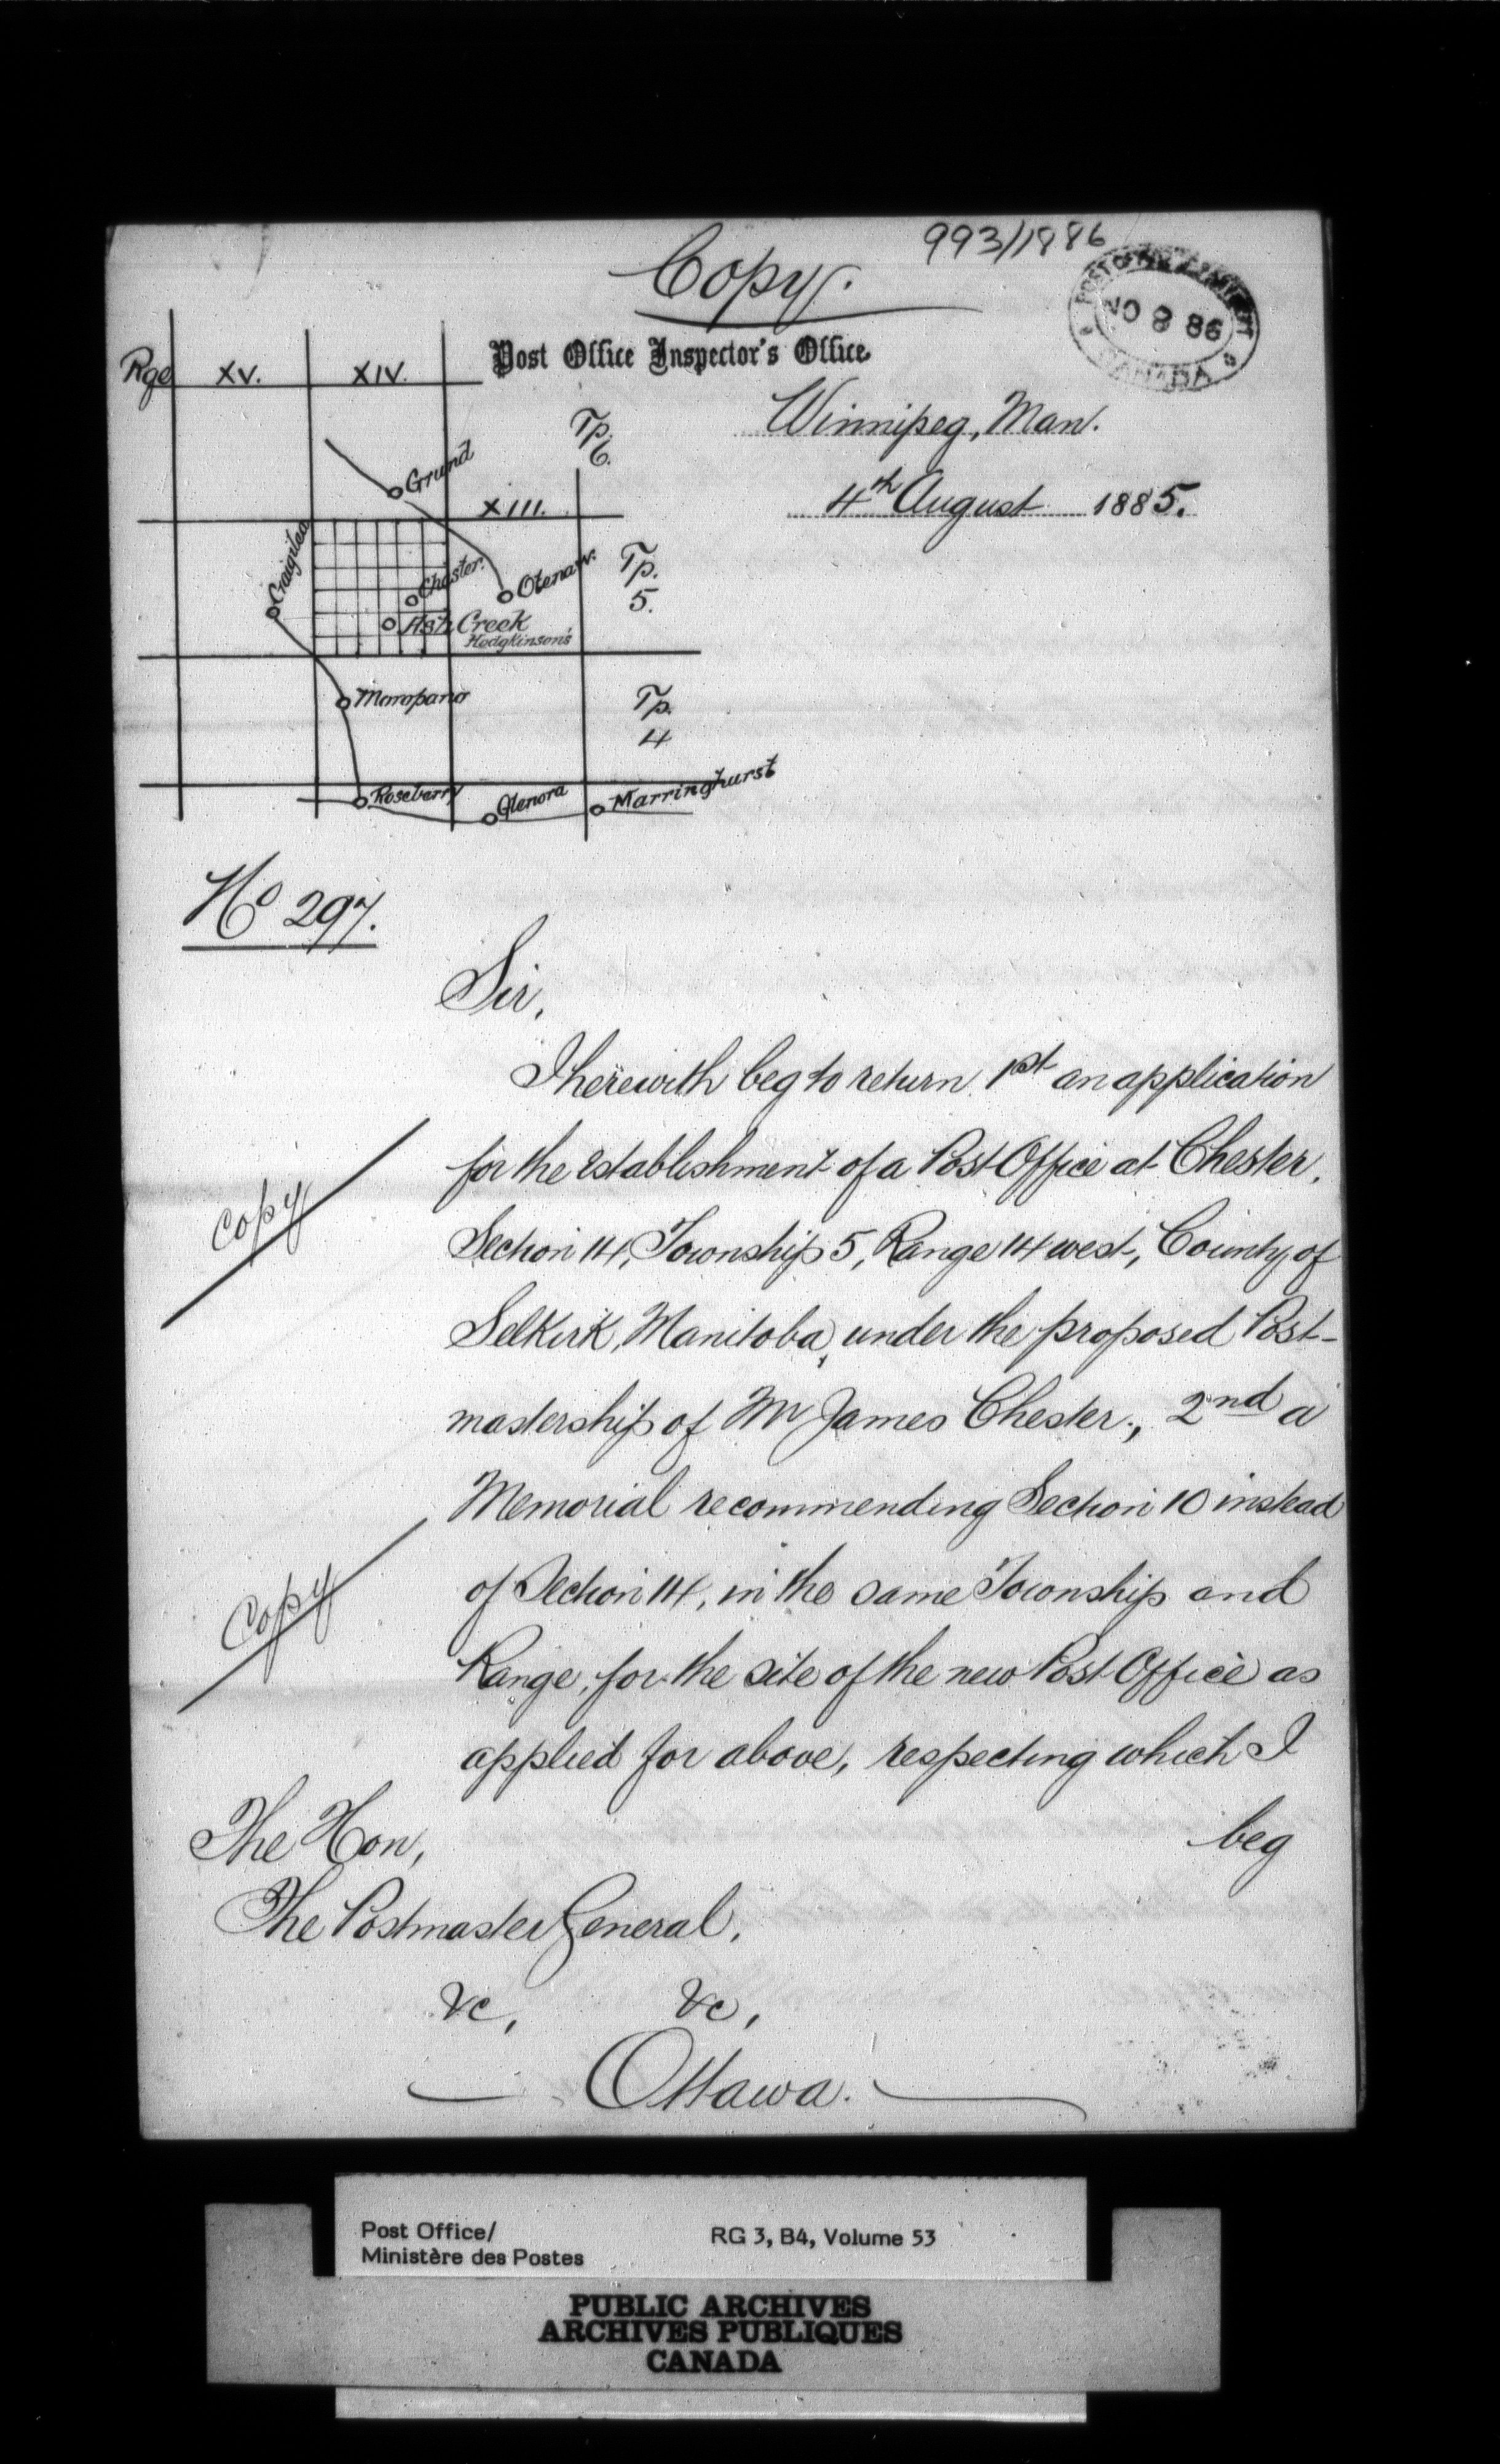 993/1886
Copy.
POST OFFICE DEPARTMENT
NO 8 86
CANADA
Post Office Inspector's Office
Winnipeg, Man.
4th August 1885.
Rge XV. XIV.
Tp. 6.
Grund
XIII.
Craigilea
Chester.
Otenaw.
Tp. 5.
Ash Creek
Hodgkinson's
Marropano
Tp. 4
Roseberry
Glenora
Marringhurst
No 297.
Sir,
I herewith beg to return 1st an application
for the establishment of a Post Office at Chester,
Copy
Section 14, Township 5, Range 14 west, County of
Selkirk, Manitoba, under the proposed Post-
mastership of Mr James Chester., 2nd a
Memorial recommending Section 10 instead
of Section 14, in the same Township and
Copy
Range, for the site of the new Post Office as
applied for above, respecting which I
beg
The Hon,
The Postmaster General,
&c, &c,
Ottawa.
Post Office/
Ministère des Postes
RG 3, B4, Volume 53
PUBLIC ARCHIVES
ARCHIVES PUBLIQUES
CANADA